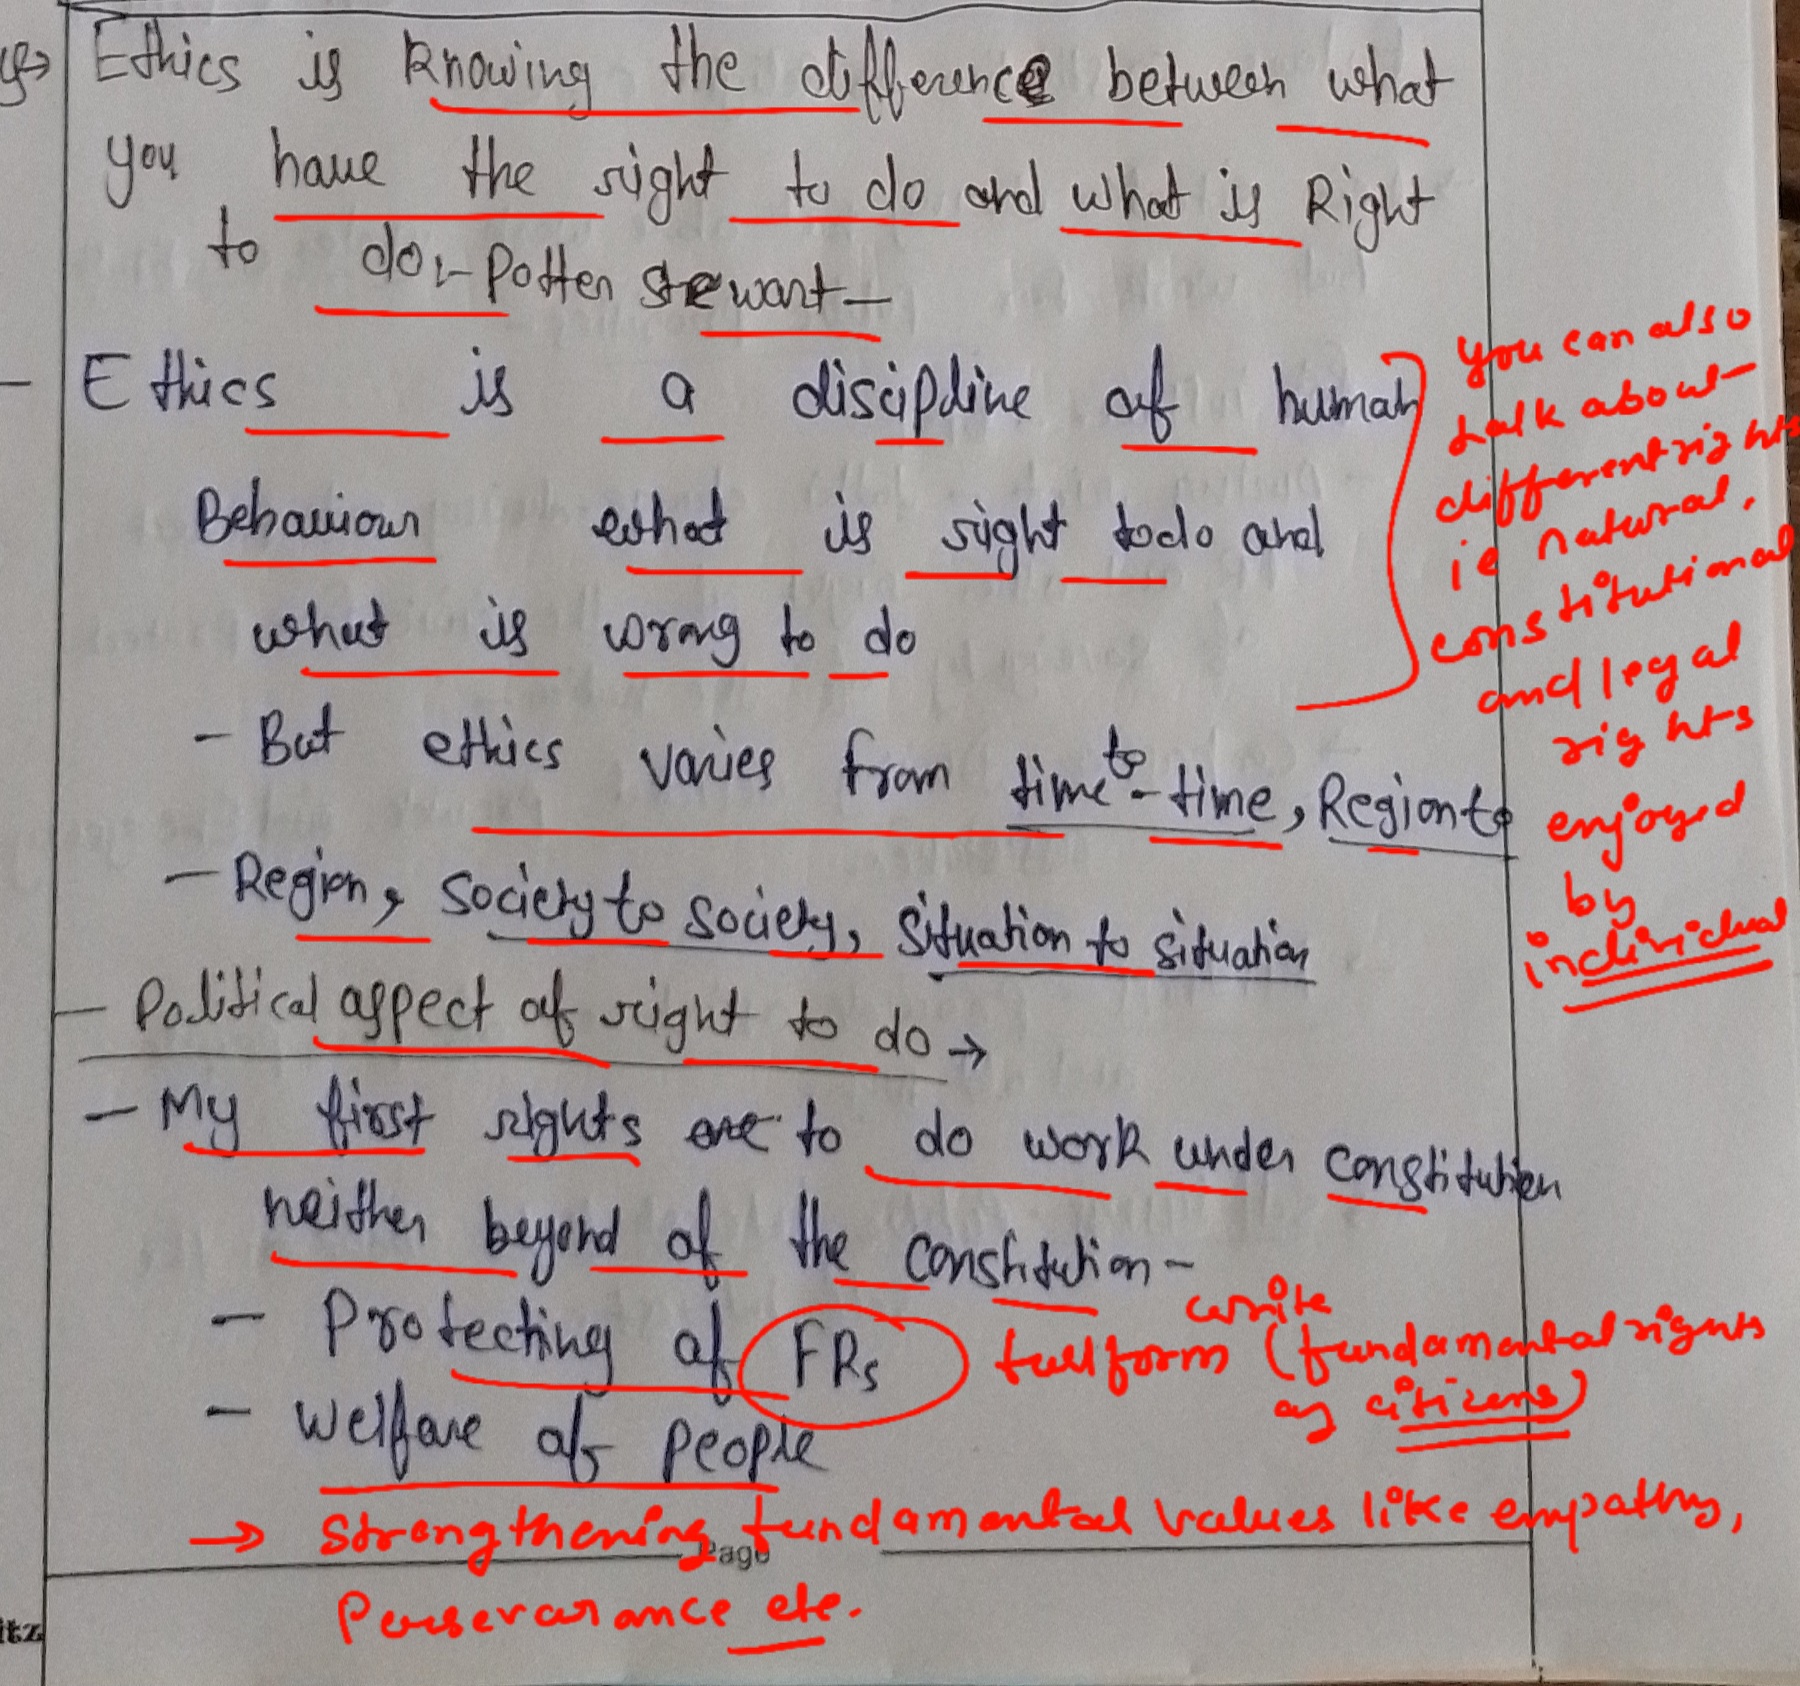 Ethics is knowing the difference between what
you have the right to do and what is Right
to do:- Potter Stewart -
- Ethics is a discipline of human
Behaviour what is right to do and
what is wrong to do
- But ethics varies from time to - time, Region to
- Region, Society to Society, Situation to situation
- Political aspect of right to do →
- My first rights are to do work under constitution
neither beyond of the constitution -
- Protecting of FRs
- Welfare of people
you can also
talk about
different rights
ie natural,
constitutional
and legal
rights
enjoyed
by
individual
write
full form (fundamental rights
of citizens)
→ Strengthening fundamental values like empathy,
Page
Perseverance etc.
itz